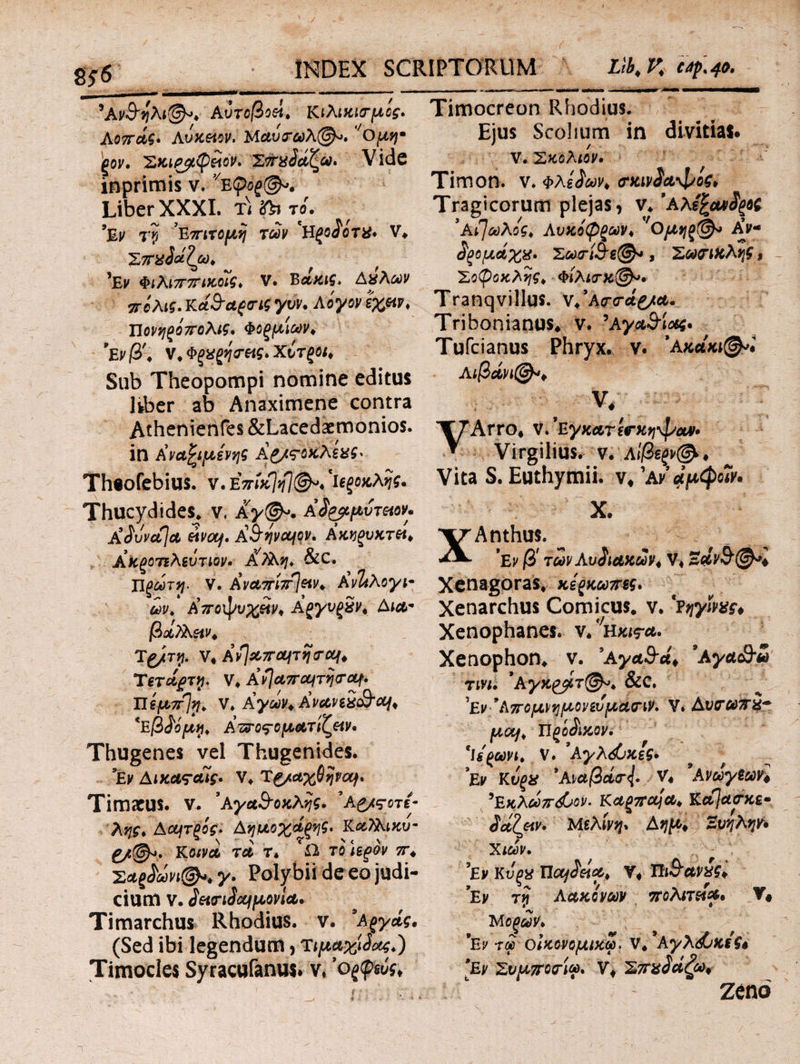 856 INDEX SCRIPTORUM Lib. V. cap. 40.
Ἀνθήλι@. Αὐτοβοεί. Κιλικισμός.
Λοπάς. Λύκειον. Μαύσωλ@. Ὅμη-
ρον. Σκιραφεῖον. Σπουδάζω. Vide
inprimis v. Ἔφορ@.
Liber XXXI. τί ἐστι τό.
Ἐν τῇ Ἐπιτομῇ τῶν Ἡροδότου. v.
Σπουδάζω.
Ἐν Φιλιππικοῖς. v. Βάκις. Δούλων
πόλις. Κάθαρσις γυν. Λόγον ἔχειν.
Πονηρόπολις. Φορμίων.
Ἐν β'. v. Φρουρήσεις. Χύτροι.
Sub Theopompi nomine editus
liber ab Anaximene contra
Athenienses & Lacedæmonios.
in Ἀναξιμένης Ἀριστοκλέους.
Theosebius. v. Ἐπίκτητ@. Ἱεροκλῆς.
Thucydides. v. Ἄγ@. Ἀδραμύτειον.
Ἀδύνατα εἶναι. Ἀθηναῖον. Ἀκηρυκτεί.
Ἀκροτελεύτιον. Ἄλλη. &c.
Πρώτῃ. v. Ἀναπίπτειν. Ἀντιλογι-
ῶν. Ἀποψύχειν. Ἀργυροῦν. Δια-
βάλλειν.
Τρίτῃ. v. Ἀνταπαιτῆσαι.
Τετάρτῃ. v. Ἀνταπαιτῆσαι.
Πέμπτῃ. v. Ἀγών. Ἀνανεοῦσθαι.
Ἑβδόμῃ. Ἀποστοματίζειν.
Thugenes vel Thugenides.
Ἐν Δικασταῖς. v. Τριαχθῆναι.
Timæus. v. Ἀγαθοκλῆς. Ἀριστοτέ-
λης. Δαιτρός. Δημοχάρης. Καλλικύ-
ρι@. Κοινὰ τὰ τ. Ὦ τὸ ἱερὸν π.
Σαρδώνι@. γ. Polybii de eo judi-
cium v. δεισιδαιμονία.
Timarchus Rhodius. v. Ἀργάς.
(Sed ibi legendum, Τιμαχίδας.)
Timocles Syracusanus. v. Ὀρφεύς.
Timocreon Rhodius.
Ejus Scolium in divitias.
v. Σκολιόν.
Timon. v. Φλέδων. σκινδαψός.
Tragicorum plejas, v. Ἀλέξανδρος
Αἰτωλός. Λυκόφρων. Ὅμηρ@ Ἀν-
δρομάχου. Σωσίθε@, Σωσικλῆς,
Σοφοκλῆς. Φιλίσκ@.
Tranqvillus. v. Ἀσσάρια.
Tribonianus. v. Ἀγαθίας.
Tuscianus Phryx. v. Ἀκάκι@.
Λιβάνι@.
V.
VArro. v. Ἐγκατέσκηψαν.
Virgilius. v. Λίβερν@.
Vita S. Euthymii. v. Ἀν' ἀμφοῖν.
X.
XAnthus.
Ἐν β' τῶν Λυδιακῶν. v. Ξάνθ@.
Xenagoras. κέρκωπες.
Xenarchus Comicus. v. Ῥηγίνους.
Xenophanes. v. Ἥκιστα.
Xenophon. v. Ἀγαθά. Ἀγαθῶ
τινι. Ἀγκράτ@. &c.
Ἐν Ἀπομνημονεύμασιν. v. Δυσωποῦ-
μαι. Πρόδικον.
Ἱέρωνι. v. Ἀγλευκές.
Ἐν Κύρου Ἀναβάσει. v. Ἀνώγεων.
Ἐκλώπευον. Καρπαία. Κατασκε-
δάζειν. Μελίνη. Δημ. Ξυήλην.
Χιών.
Ἐν Κύρου Παιδείᾳ. v. Πιθανούς.
Ἐν τῇ Λακώνων πολιτείᾳ. v.
Μορῶν.
Ἐν τῷ οἰκονομικῷ. v. Ἀγλευκές.
Ἐν Συμποσίῳ. v. Σπουδάζω.
Zeno